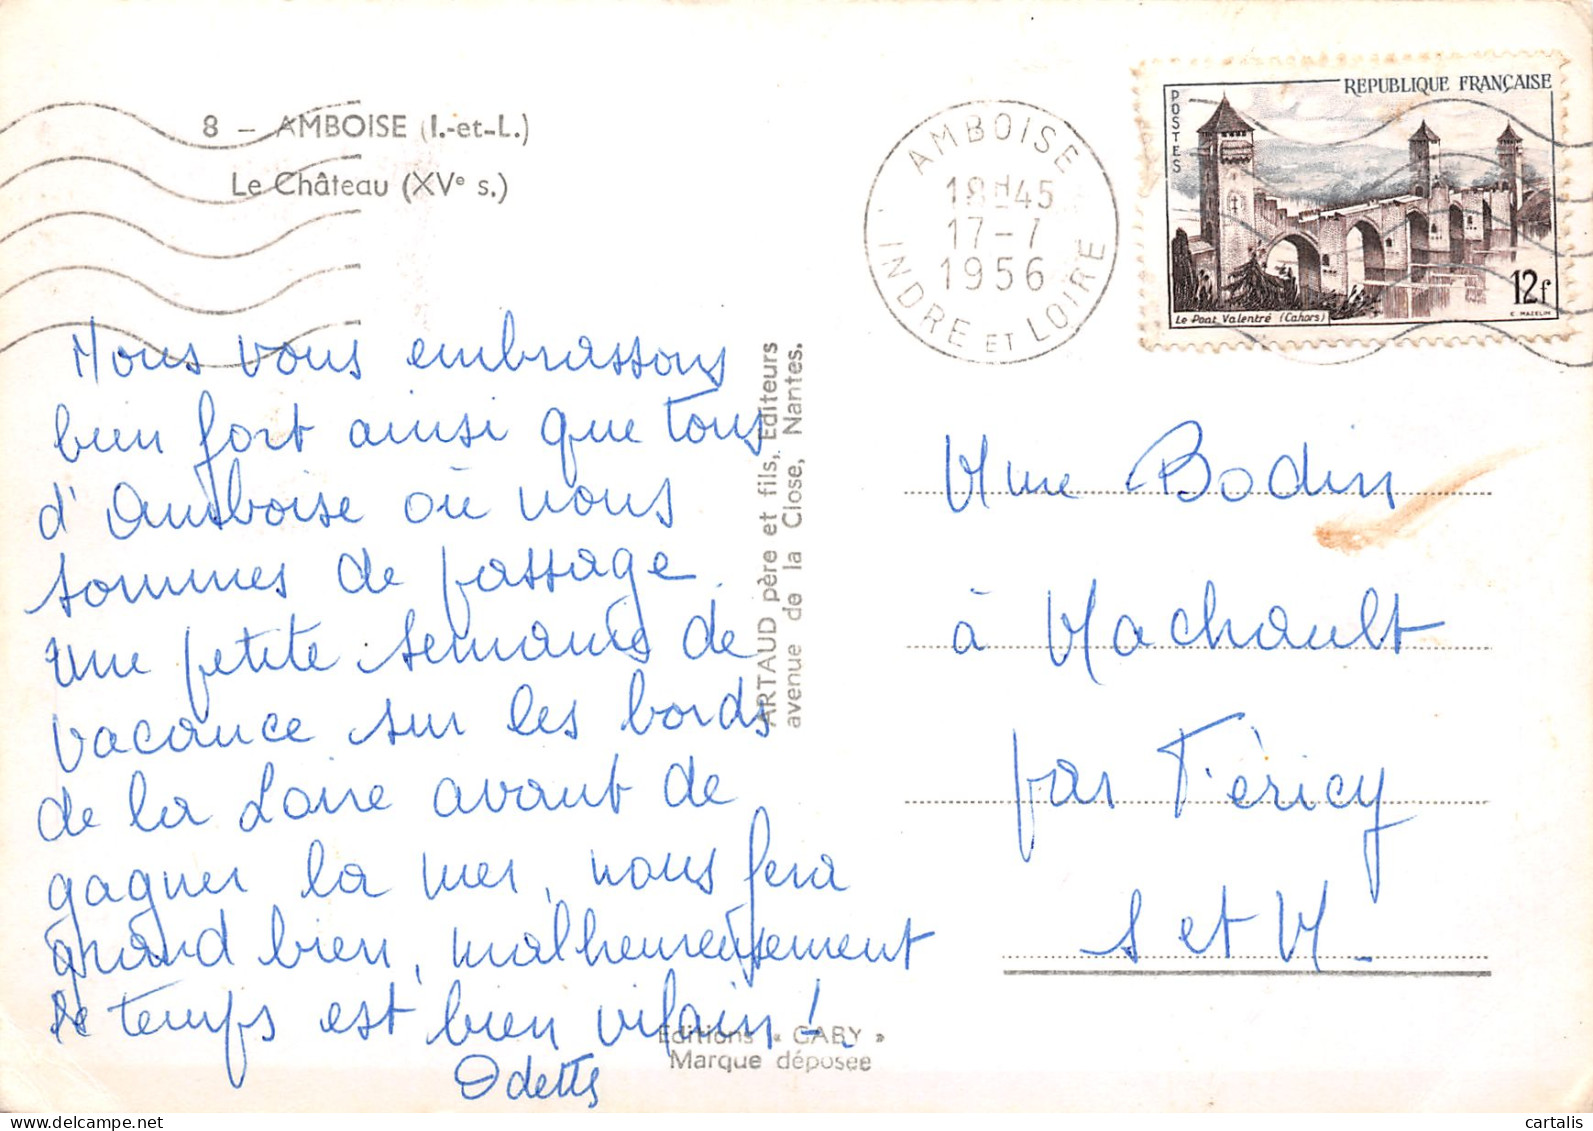 8 - AMBOISE (I.-et-L.)
Le Château (XVe s.)
AMBOISE
18H45
17-7
1956
INDRE ET LOIRE
REPUBLIQUE FRANÇAISE
POSTES
12f
Le Pont Valentré (Cahors)
C. MAZELIN
Nous vous embrassons
bien fort ainsi que tous
d'Amboise où nous
sommes de passage.
Une petite semaine de
vacance sur les bords
de la Loire avant de
gagner la mer, nous fera
grand bien, malheureusement
le temps est bien vilain !
Odette
ARTAUD père et fils, Editeurs
avenue de la Close, Nantes.
Editions « GABY »
Marque déposée
Mme Bodin
à Machault
par Féricy
S et M.
www.delcampe.net
cartalis